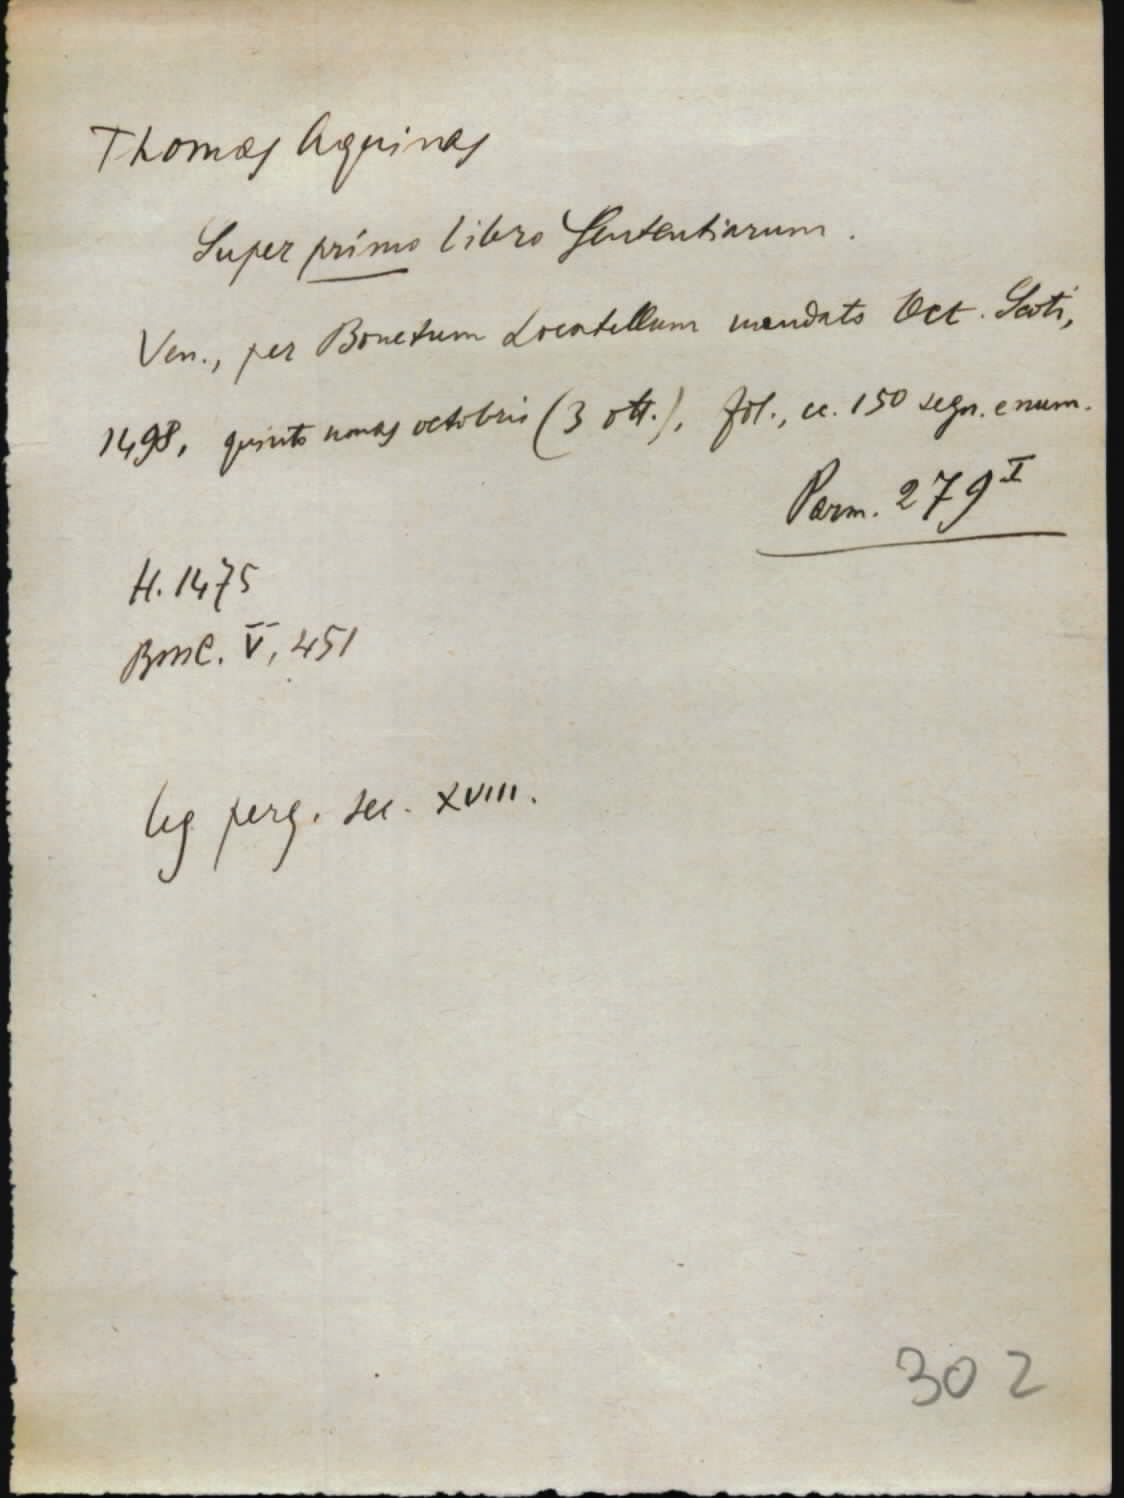 Thomas Aquinas
Super primo libro Sententiarum.
Ven., per Bonetum Locatellum mandato Oct. Scoti,
1498, quinto nonas octobris (3 ott.), fol., cc. 150 segn. e num.
Parm. 279 I
H. 1475
BMC. V, 451
leg. perg. sec. XVIII.
302